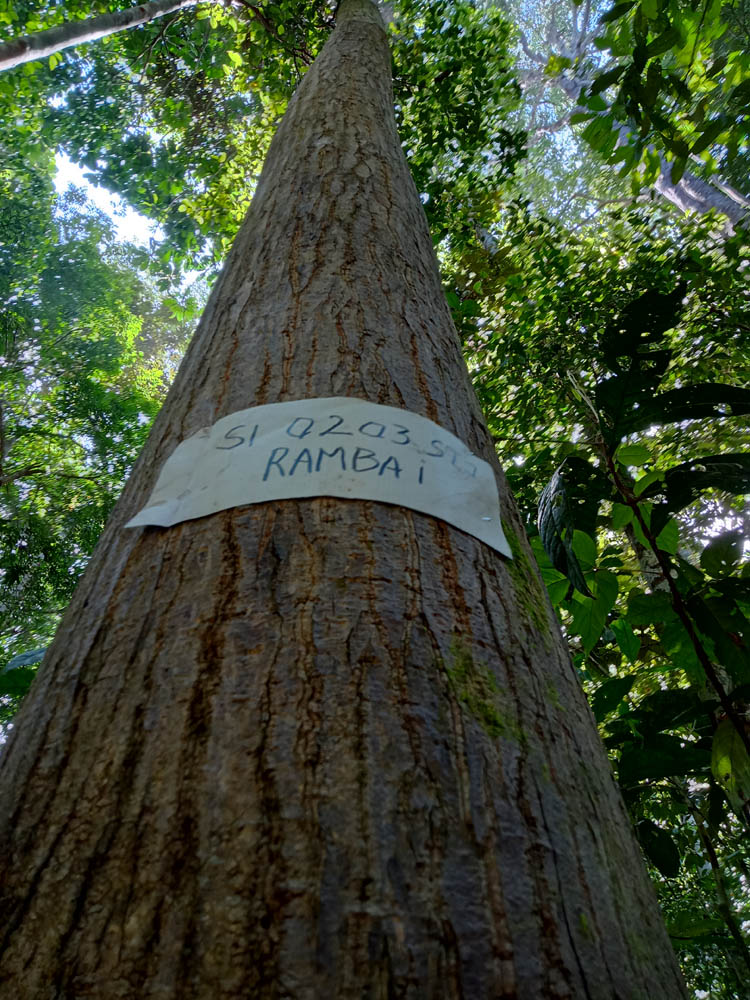 SI 0203
RAMBAi